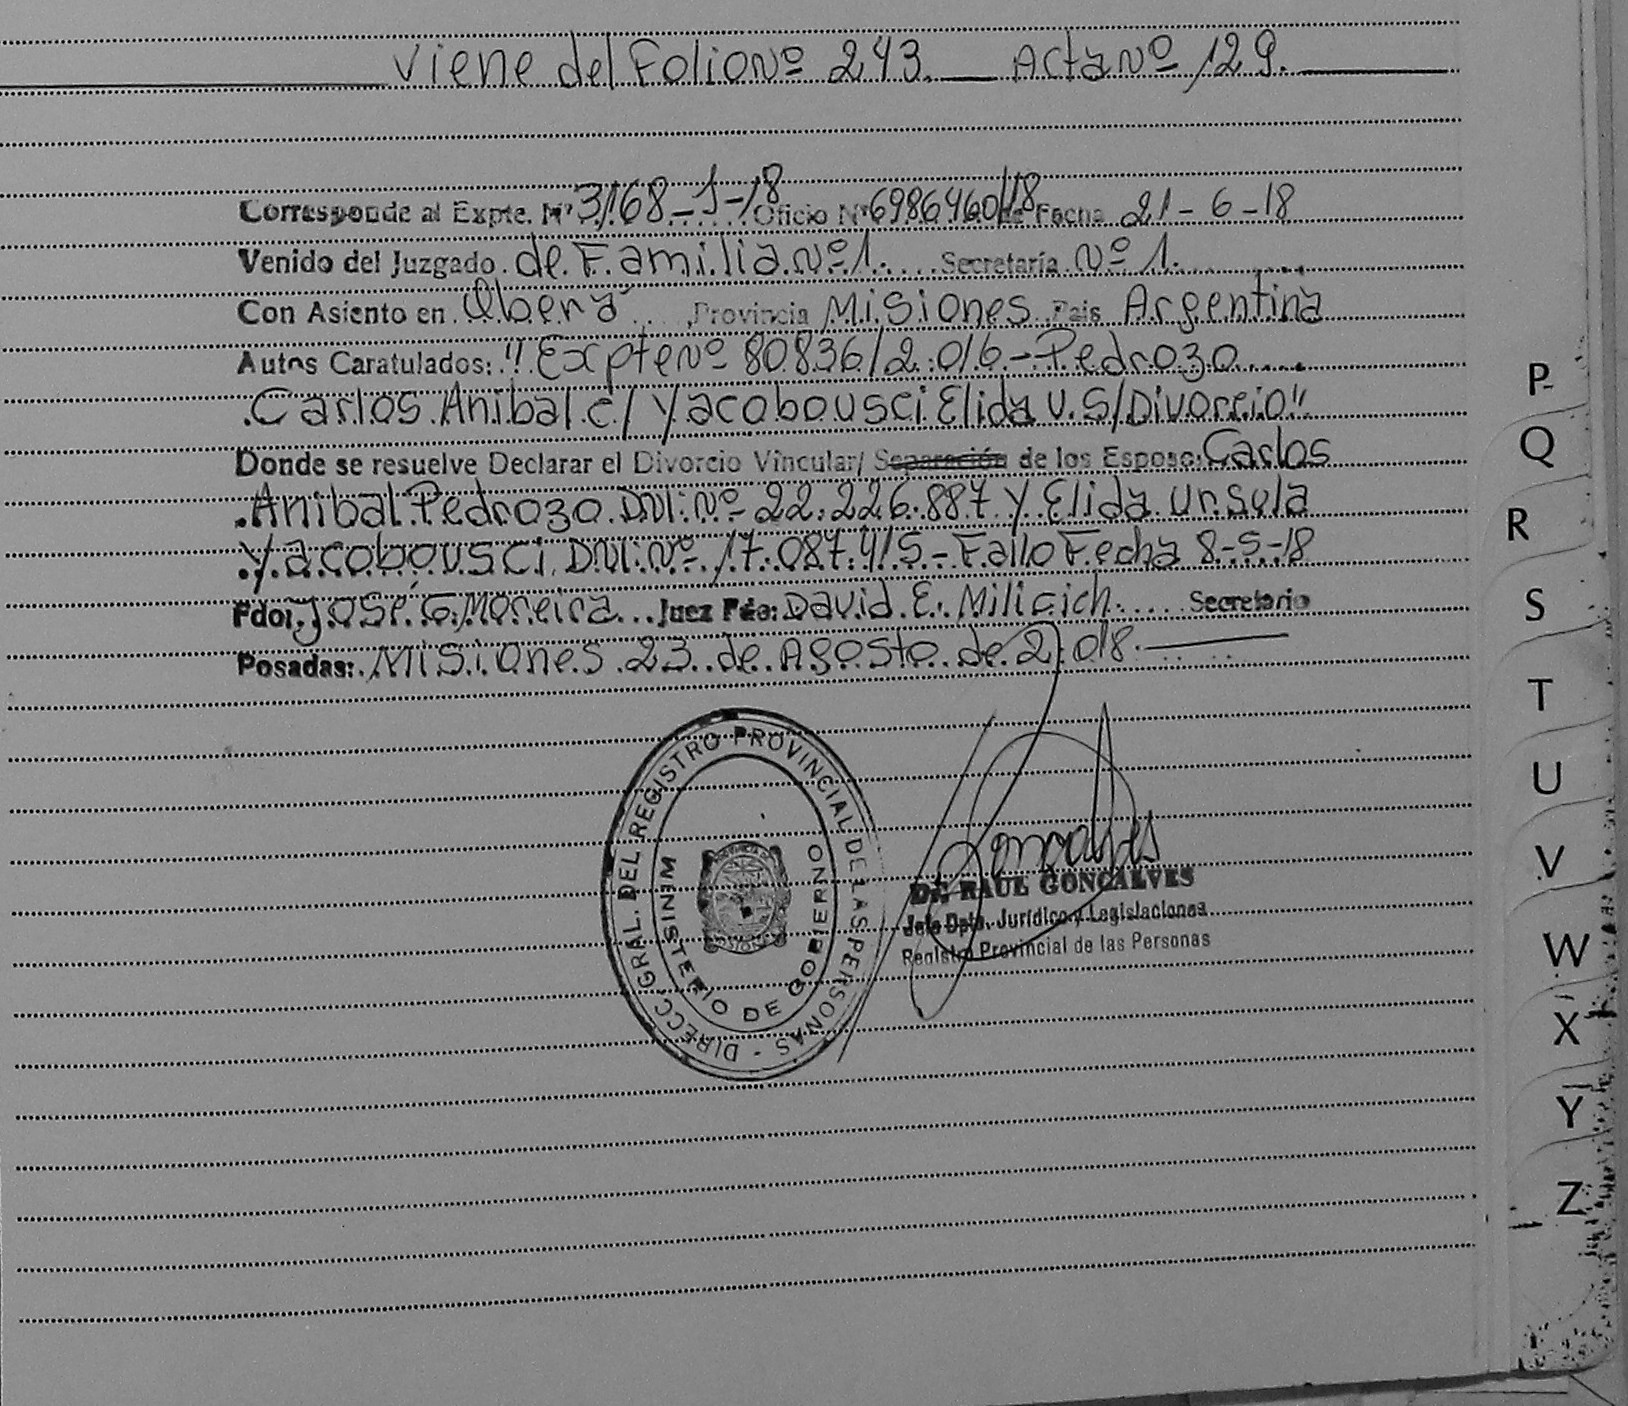 Viene del Folio Nº 243. Acta Nº 129.
Corresponde al Expte. Nº 3168-J-18 Oficio Nº 6986460/18 de Fecha 21-6-18
Venido del Juzgado de Familia Nº 1. Secretaría Nº 1.
Con Asiento en Oberá Provincia Misiones País Argentina
Autos Caratulados: "Expte Nº 80836/2.016 - Pedrozo
Carlos Anibal c/ Yacobousci Elida U. S/Divorcio"
Donde se resuelve Declarar el Divorcio Vincular/ Separación de los Esposo: Carlos
Anibal Pedrozo DNI: Nº 22.226.887 y Elida Ursula
Yacobousci DNI: Nº 17.087.415 - Fallo Fecha 8-5-18
Fdo: José G. Moreira Juez Fdo: David E. Milicich Secretario
Posadas: Misiones 23 de Agosto de 2.018.
DIRECC. GRAL. DEL REGISTRO PROVINCIAL DE LAS PERSONAS -
MINISTERIO DE GOBIERNO
MISIONES
Goncalves
Dr. RAUL GONCALVES
Jefe Dpto. Jurídico y Legislaciones
Registro Provincial de las Personas
P
Q
R
S
T
U
V
W
X
Y
Z